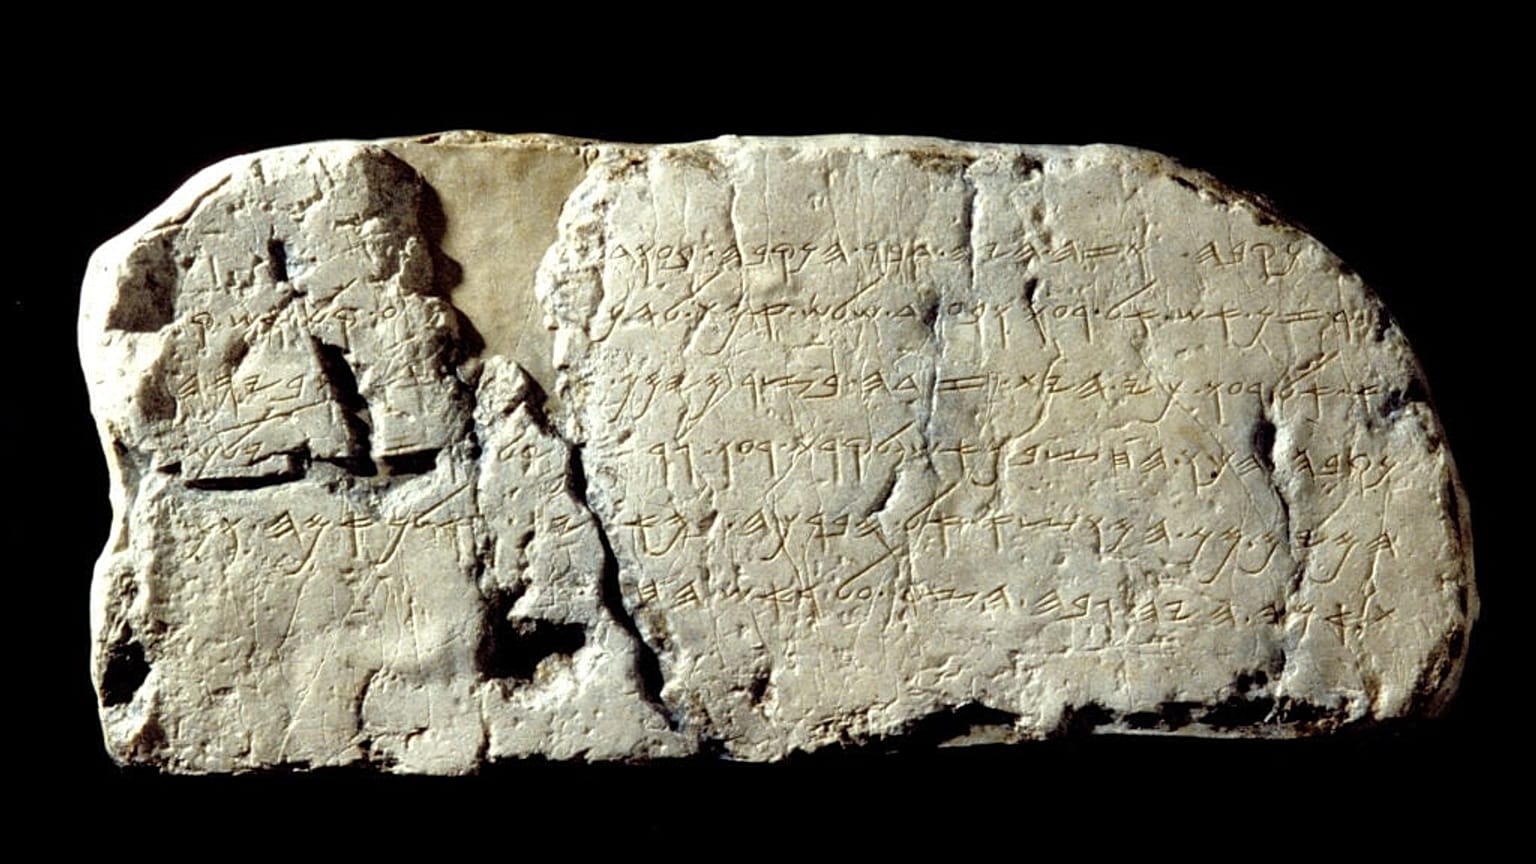 𐤄𐤍𐤒𐤁𐤄 . 𐤅𐤆𐤄 . 𐤄𐤉𐤄 . 𐤃𐤁𐤓 . 𐤄𐤍𐤒𐤁𐤄 . 𐤁𐤏𐤅𐤃
𐤄𐤂𐤓𐤆𐤍 . 𐤀𐤔 . 𐤀𐤋 . 𐤓𐤏𐤅 . 𐤅𐤁𐤏𐤅𐤃 . 𐤔𐤋𐤔 . 𐤀𐤌𐤕 . 𐤋𐤄𐤍 𐤏 . 𐤒𐤋 . 𐤀𐤔 . 𐤒
𐤓𐤀 . 𐤀𐤋 . 𐤓𐤏𐤅 . 𐤊𐤉 . 𐤄𐤉𐤕 . 𐤆𐤃𐤄 . 𐤁𐤑𐤓 . 𐤌𐤉𐤌𐤍 . 𐤀𐤋 . 𐤅𐤁𐤉𐤌 . 𐤄
𐤍𐤒𐤁𐤄 . 𐤄𐤊𐤅 . 𐤄𐤇𐤑𐤁𐤌 . 𐤀𐤔 . 𐤋𐤒𐤓𐤕 . 𐤓𐤏𐤅 . 𐤂𐤓𐤆𐤍 . 𐤏𐤋 . 𐤓𐤆𐤍 . 𐤅𐤉𐤋𐤊𐤅
𐤄𐤌𐤉𐤌 . 𐤌𐤍 . 𐤄𐤌𐤅𐤑𐤀 . 𐤀𐤋 . 𐤄𐤁𐤓𐤊𐤄 . 𐤁𐤌𐤀𐤕𐤉𐤌 . 𐤅𐤀𐤋𐤐 . 𐤀𐤌𐤄 . 𐤅𐤌𐤀
𐤕 . 𐤀𐤌𐤄 . 𐤄𐤉𐤄 . 𐤂𐤁𐤄 . 𐤄𐤑𐤓 . 𐤏𐤋 . 𐤓𐤀𐤔 . 𐤄𐤇𐤑𐤁